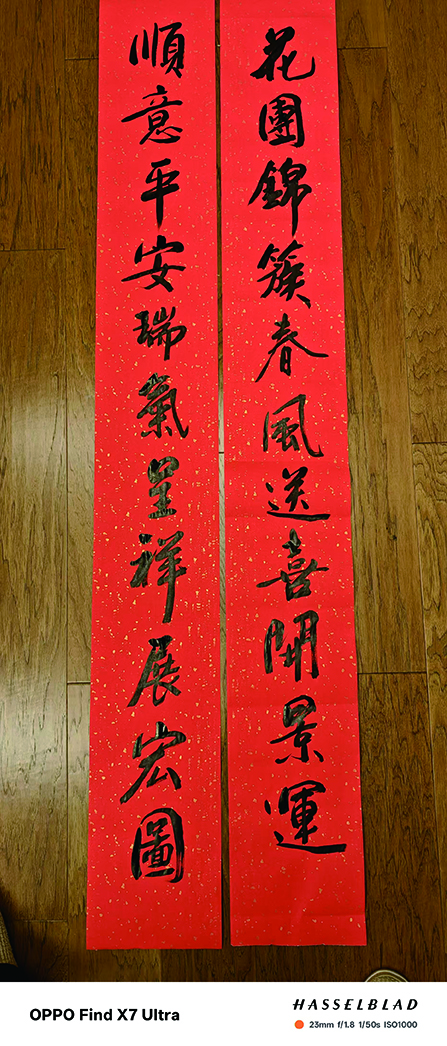 花團錦簇春風送喜開景運
順意平安瑞氣呈祥展宏圖
OPPO Find X7 Ultra
HASSELBLAD
23mm f/1.8 1/50s ISO1000